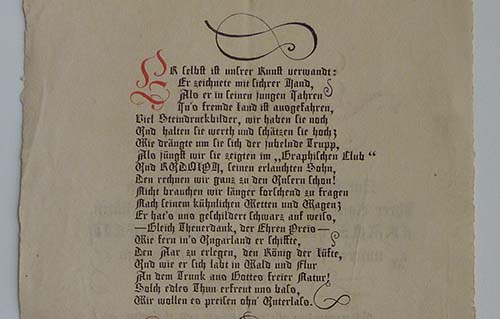 ER selbst ist unsrer Kunst verwandt:
Er zeichnete mit sichrer Hand,
Als er in seinen jungen Jahren
In's fremde Land ist ausgefahren,
Viel Steindruckbilder, wir haben sie noch
Und halten sie werth und schätzen sie hoch;
Wie drängte um sie sich der jubelnde Trupp,
Als jüngst wir sie zeigten im „Graphischen Club“
Und RUDOLPH, seinen erlauchten Sohn,
Den rechnen wir ganz zu den Unsern schon!
Nicht brauchen wir länger forschend zu fragen
Nach seinem kühnlichen Wetten und Wagen;
Er hat's uns geschildert schwarz auf weiss,
—Gleich Theuerdank, der Ehren Preis—
Wie fern in's Ungarland er schiffte,
Den Aar zu erlegen, den König der Lüfte,
Und wie er sich labt in Wald und Flur
An dem Trunk aus Gottes freier Natur!
Solch edles Thun erfreut uns bass,
Wir wollen es preisen ohn' Unterlass.